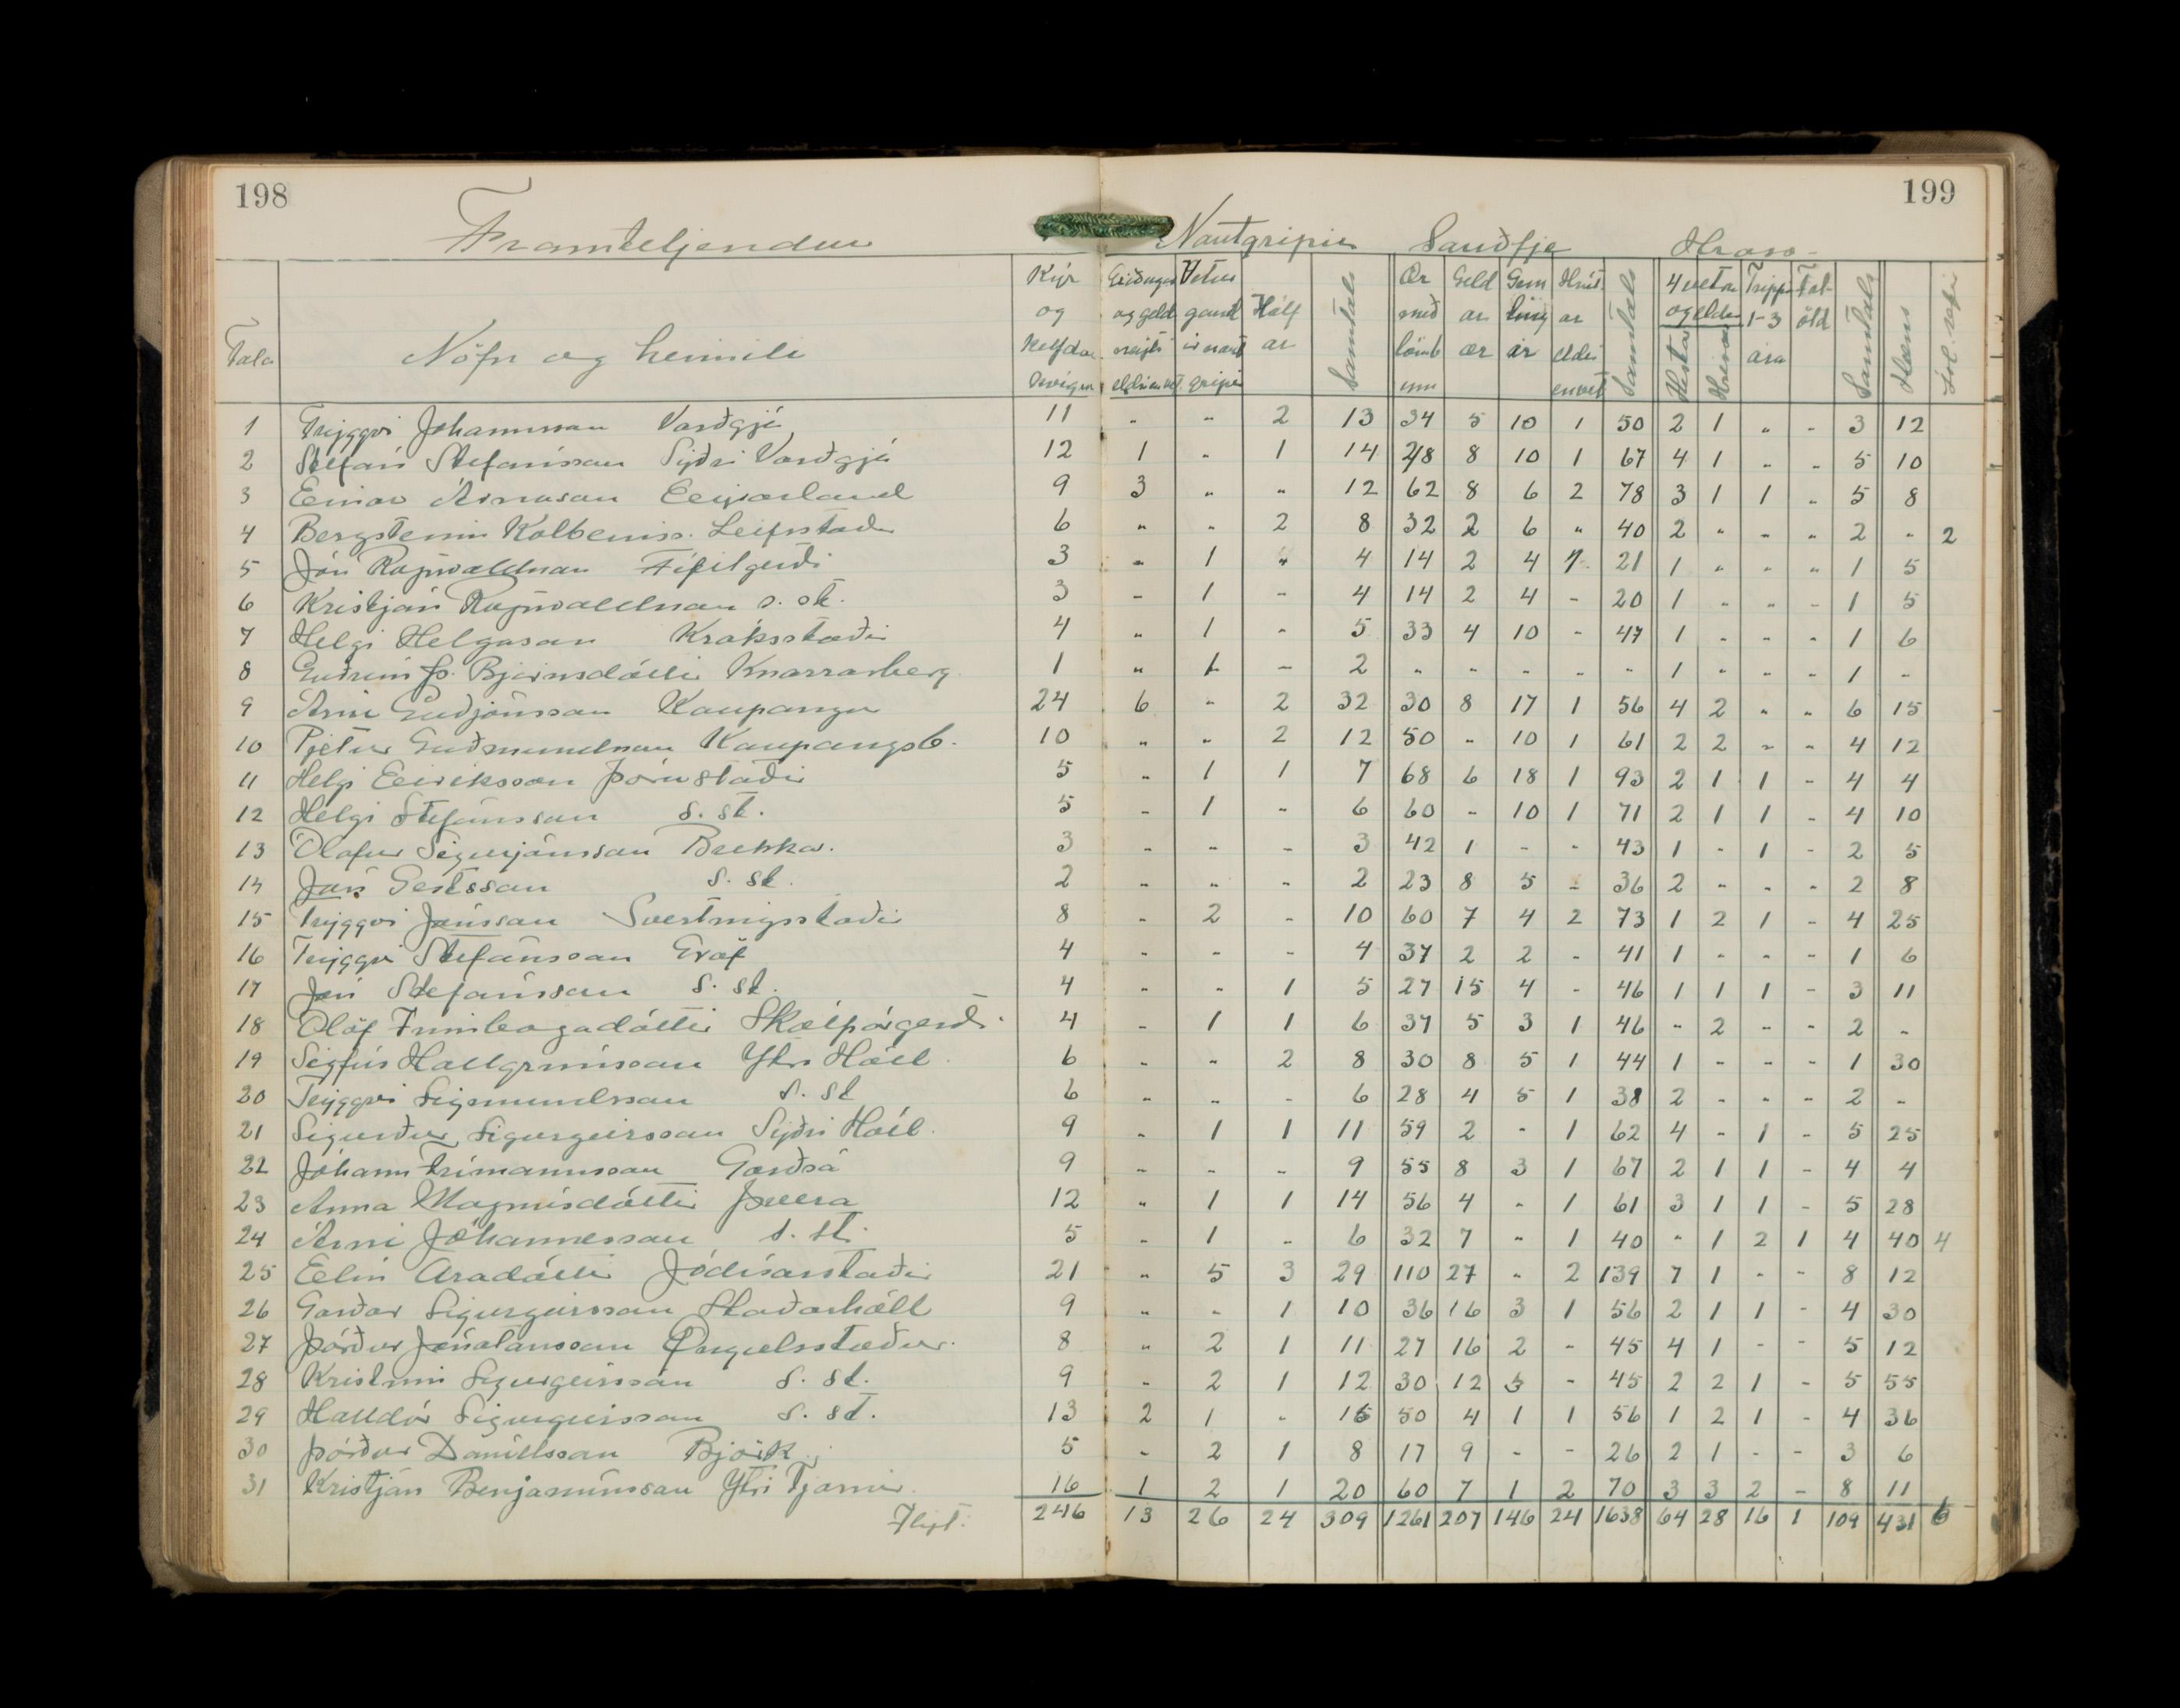 198
199
Framteljendur
Nautgripir Sauðfje Hross-
Tala Nöfn og heimili Kýr og Kelfdar kvígur Griðungar og geld neyti eldri en vet. Vetur gamlir nautgripir Kálfar Samtals Ær með lömbum Geldar ær Gemlingar Hrútar eldri en vet Samtals 4 vetra og eldri Hestar Hryssur Tripp 1-3 ára Folöld Samtals Hæns
1 Tryggvi Jóhannsson Varðgjá 11 " " 2 13 34 5 10 1 50 2 1 " - 3 12
2 Stefán Stefánsson Syðri Varðgjá 12 1 " 1 14 48 8 10 1 67 4 1 " - 5 10
3 Einar Árnason Eyrarland 9 3 " " 12 62 8 6 2 78 3 1 1 " 5 8
4 Bergsteinn Kolbeinss. Leifsstaðir 6 " " 2 8 32 2 6 " 40 2 " " " 2 " 2
5 Jón Rögnvaldsson Fífilgerði 3 " 1 " 4 14 2 4 1 21 1 " " " 1 5
6 Kristján Rögnvaldsson s. st. 3 - 1 - 4 14 2 4 - 20 1 - " - 1 5
7 Helgi Helgason Króksstaðir 4 " 1 - 5 33 4 10 - 47 1 - - - 1 6
8 Guðrún Þ. Björnsdóttir Knarrarberg 1 " 1 - 2 " - - - - 1 - - - 1 -
9 Árni Guðjónsson Kaupangur 24 6 " 2 32 30 8 17 1 56 4 2 " " 6 15
10 Pjetur Guðmundsson Kaupangsb. 10 " " 2 12 50 - 10 1 61 2 2 " " 4 12
11 Helgi Eiríksson Þórustaðir 5 " 1 1 7 68 6 18 1 93 2 1 1 - 4 4
12 Helgi Stefánsson s. st. 5 - 1 " 6 60 - 10 1 71 2 1 1 - 4 10
13 Ólafur Sigurjónsson Brekka. 3 - - - 3 42 1 - - 43 1 - 1 - 2 5
14 Jón Gestsson s. st. 2 " " " 2 23 8 5 - 36 2 - - - 2 8
15 Tryggvi Jónsson Svertingsstaðir 8 " 2 - 10 60 7 4 2 73 1 2 1 - 4 25
16 Tryggvi Stefánsson Gröf 4 - - - 4 37 2 2 - 41 1 - - - 1 6
17 Jón Stefánsson s. st. 4 " " 1 5 27 15 4 - 46 1 1 1 - 3 11
18 Ólöf Finnbogadóttir Skálpagerði. 4 - 1 1 6 37 5 3 1 46 - 2 - - 2 -
19 Sigfús Hallgrímsson Ytri Hóll 6 - " 2 8 30 8 5 1 44 1 - - - 1 30
20 Tryggvi Sigmundsson s. st 6 " - - 6 28 4 5 1 38 2 - - - 2 -
21 Sigurður Sigurgeirsson Syðri Hóll. 9 - 1 1 11 59 2 - 1 62 4 - 1 - 5 25
22 Jóhann Frímannsson Garðsá 9 - - - 9 55 8 3 1 67 2 1 1 - 4 4
23 Anna Magnúsdóttir Þverá 12 " 1 1 14 56 4 - 1 61 3 1 1 - 5 28
24 Árni Jóhannesson s. st. 5 - 1 - 6 32 7 " 1 40 " 1 2 1 4 40 4
25 Elín Aradóttir Jódísarstaðir 21 " 5 3 29 110 27 " 2 139 7 1 - - 8 12
26 Garðar Sigurgeirsson Staðarhóll 9 " - 1 10 36 16 3 1 56 2 1 1 - 4 30
27 Þórður Jónatansson Öngulsstaðir. 8 " 2 1 11 27 16 2 - 45 4 1 - - 5 12
28 Kristinn Sigurgeirsson s. st. 9 " 2 1 12 30 12 3 - 45 2 2 1 - 5 55
29 Halldór Sigurgeirsson s. st. 13 2 1 - 16 50 4 1 1 56 1 2 1 - 4 36
30 Þórður Daníelsson Björk 5 - 2 1 8 17 9 - - 26 2 1 - - 3 6
31 Kristján Benjamínsson Ytri Tjarnir. 16 1 2 1 20 60 7 1 2 70 3 3 2 - 8 11
Flyt: 246 13 26 24 309 1261 207 146 24 1638 64 28 16 1 109 431 6